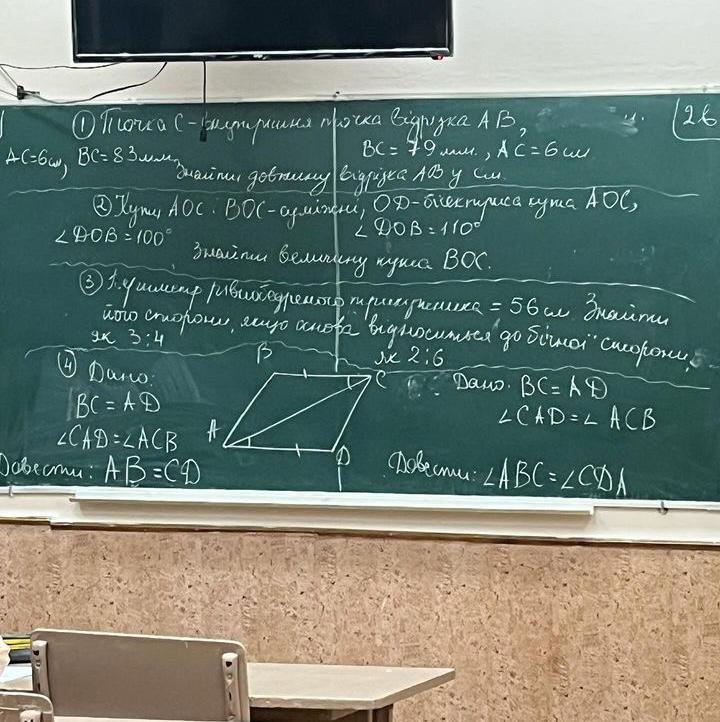 ① Точка С - внутрішня точка відрізка АВ,
2в
АС=6см, ВС=83мм,
ВС=79мм., АС=6см
Знайти довжину відрізка АВ у см.
② Кути АОС і ВОС-суміжні, ОD-бісектриса кута АОС,
∠DOB=100°
∠DOB=110°
Знайти величину кута ВОС.
③ Периметр рівнобедреного трикутника = 56см Знайти
його сторони, якщо основа відноситься до бічної сторони,
як 3:4
як 2:6
④ Дано:
BC=AD
∠CAD=∠ACB
Довести: AB=CD
B
C
A
D
Дано: BC=AD
∠CAD=∠ACB
Довести: ∠ABC=∠CDA